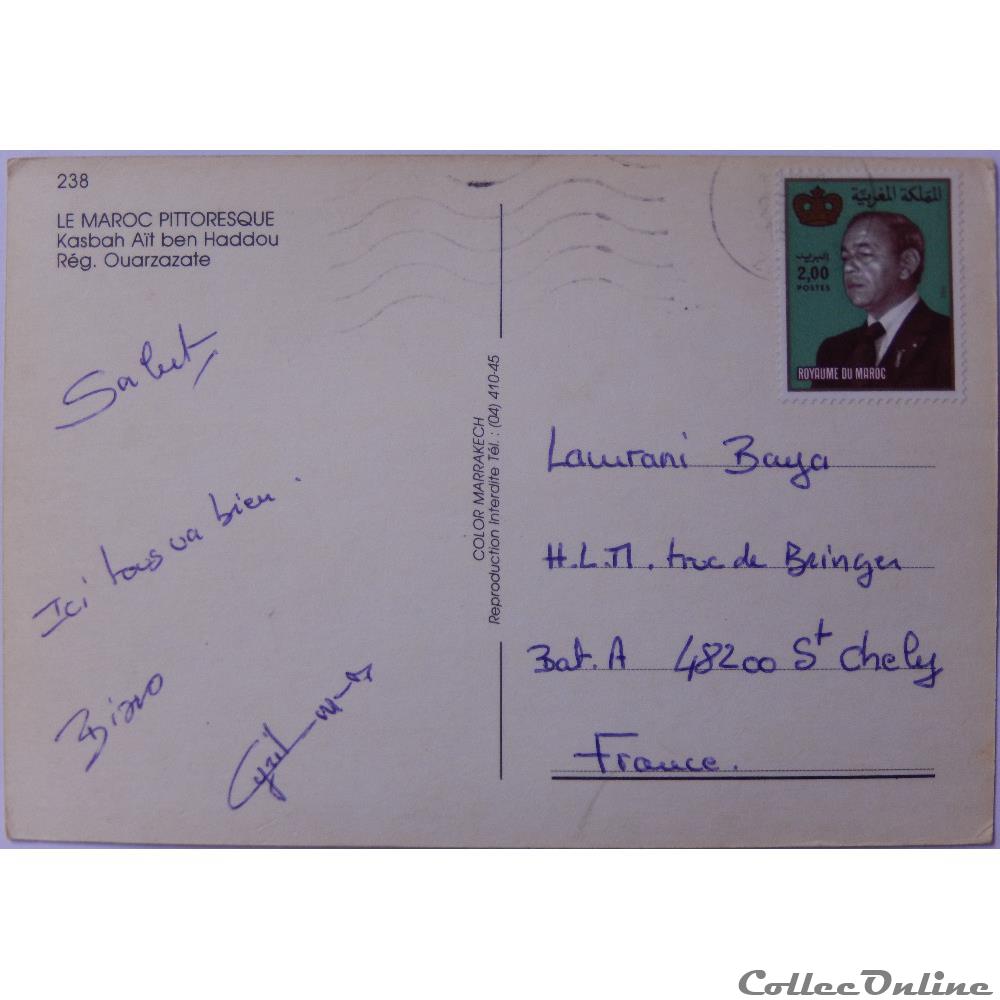 238
LE MAROC PITTORESQUE
Kasbah Aït ben Haddou
Rég. Ouarzazate
Salut
Ici tous va bien.
Cyril
COLOR MARRAKECH
Reproduction Interdite Tél. : (04) 410-45
المملكة المغربية
البريد
2,00
POSTES
ROYAUME DU MAROC
Lamrani Baya
H.L.M. truc de Bringer
Bat. A 48200 St Chely
France.
CollecOnline